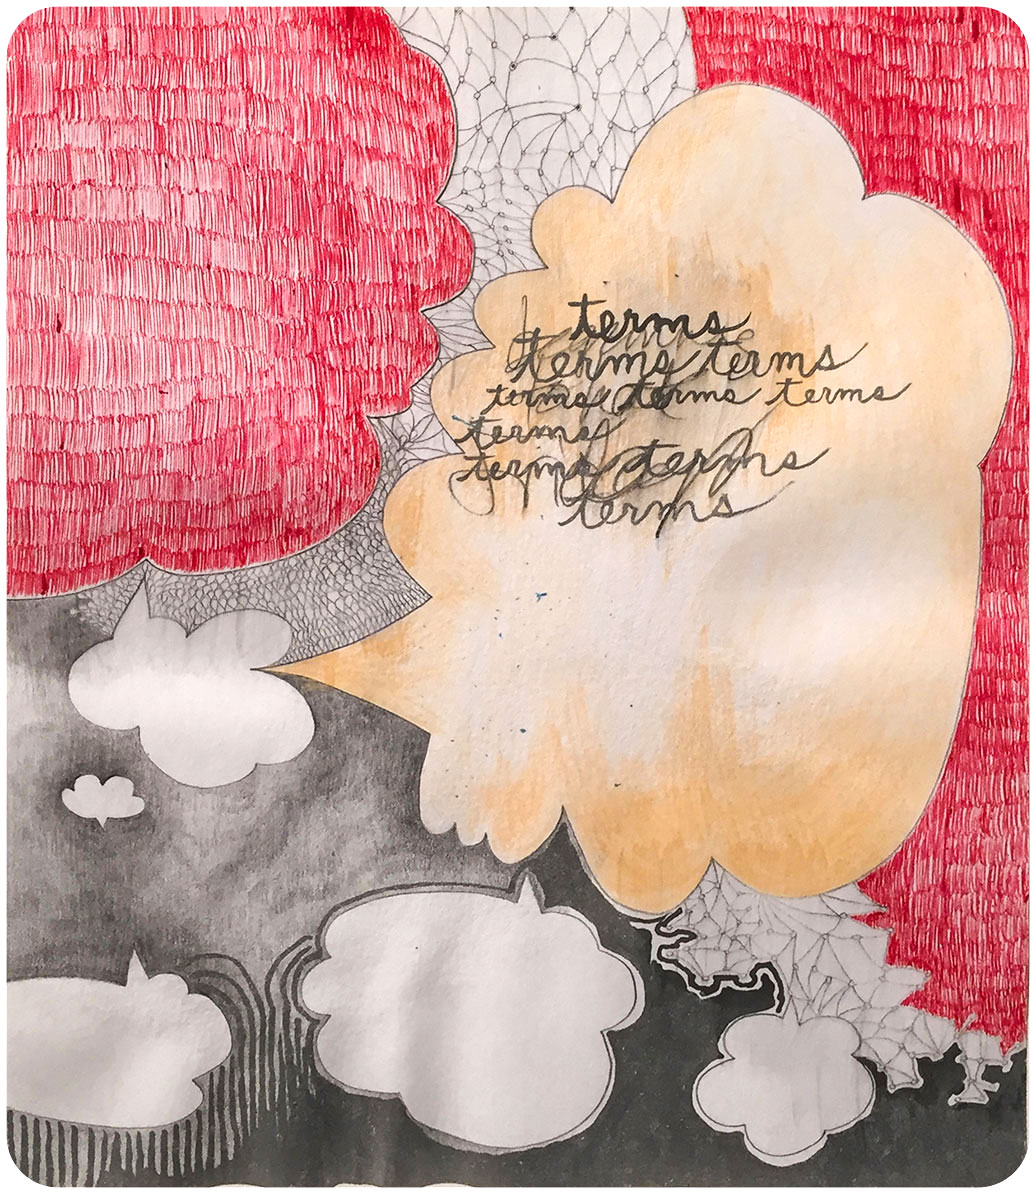 terms
terms terms
terms terms terms
terms
terms terms
terms